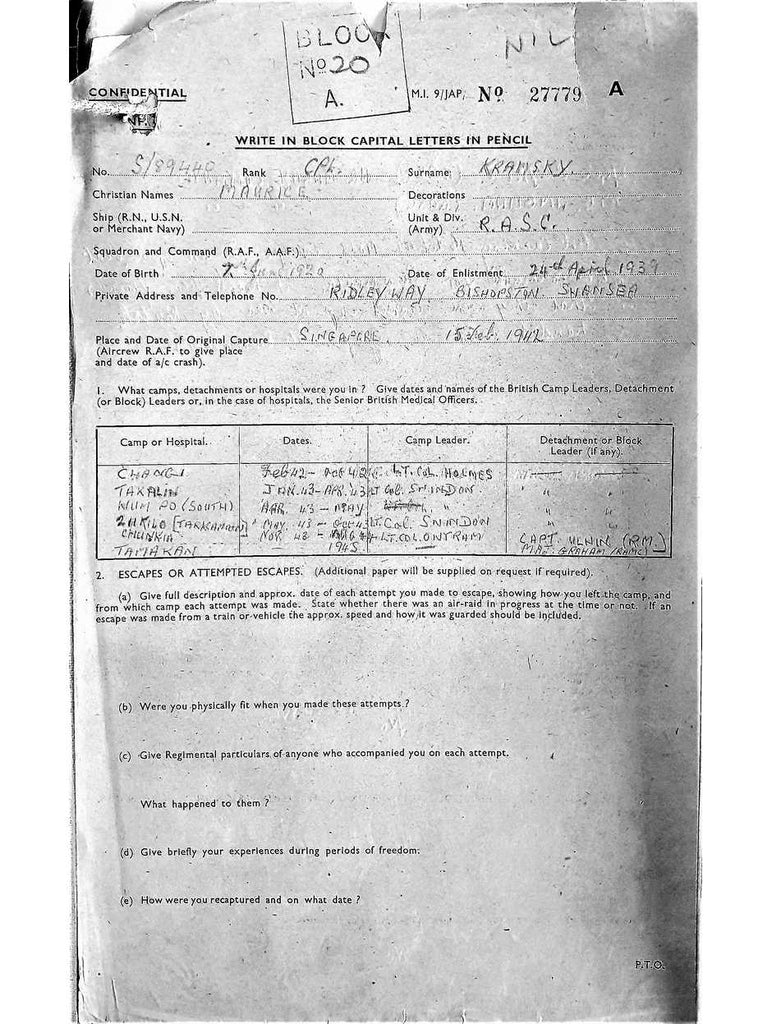 BLOCK
Nº 20
A.
NIL
CONFIDENTIAL
M.I. 9/JAP. Nº 27779 A
WRITE IN BLOCK CAPITAL LETTERS IN PENCIL
No. S/89440 Rank CPL. Surname KRAMSKY.
Christian Names MAURICE Decorations
Ship (R.N., U.S.N. or Merchant Navy) Unit & Div. (Army) R.A.S.C.
Squadron and Command (R.A.F., A.A.F.)
Date of Birth June 1920 Date of Enlistment 24th April 1939
Private Address and Telephone No. RIDLEY WAY BISHOPSTON SWANSEA
Place and Date of Original Capture SINGAPORE 15 Feb. 1942
(Aircrew R.A.F. to give place
and date of a/c crash).
1. What camps, detachments or hospitals were you in ? Give dates and names of the British Camp Leaders, Detachment
(or Block) Leaders or, in the case of hospitals, the Senior British Medical Officers.
Camp or Hospital. Dates. Camp Leader. Detachment or Block Leader (if any).
CHANGI Feb 42 - 42 LT. COL. HOLMES
TAKALIN JAN. 43 - APR. 43 LT COL. SWINDON "
NUM PO (SOUTH) APR. 43 - MAY " "
KILO MAY. 43 - OCT 43 LT. COL. SWINDON "
CHUNKIA NOV. 43 - LT. COL. OUTRAM CAPT. (R.M.)
TAMAKAN 1945 — MAJ. GRAHAM (RAMC)
2. ESCAPES OR ATTEMPTED ESCAPES. (Additional paper will be supplied on request if required).
(a) Give full description and approx. date of each attempt you made to escape, showing how you left the camp, and
from which camp each attempt was made. State whether there was an air-raid in progress at the time or not. If an
escape was made from a train or vehicle the approx. speed and how it was guarded should be included.
(b) Were you physically fit when you made these attempts ?
(c) Give Regimental particulars of anyone who accompanied you on each attempt.
What happened to them ?
(d) Give briefly your experiences during periods of freedom.
(e) How were you recaptured and on what date ?
P.T.O.